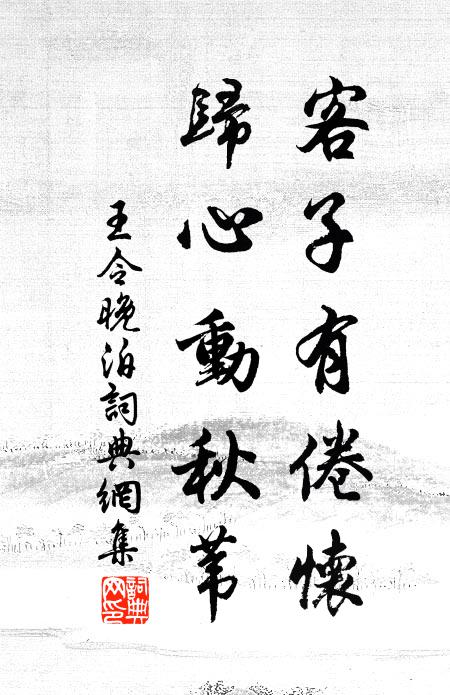 客子有倦懷
歸心動秋葦
王令晚泊詞典網集
詞典網印